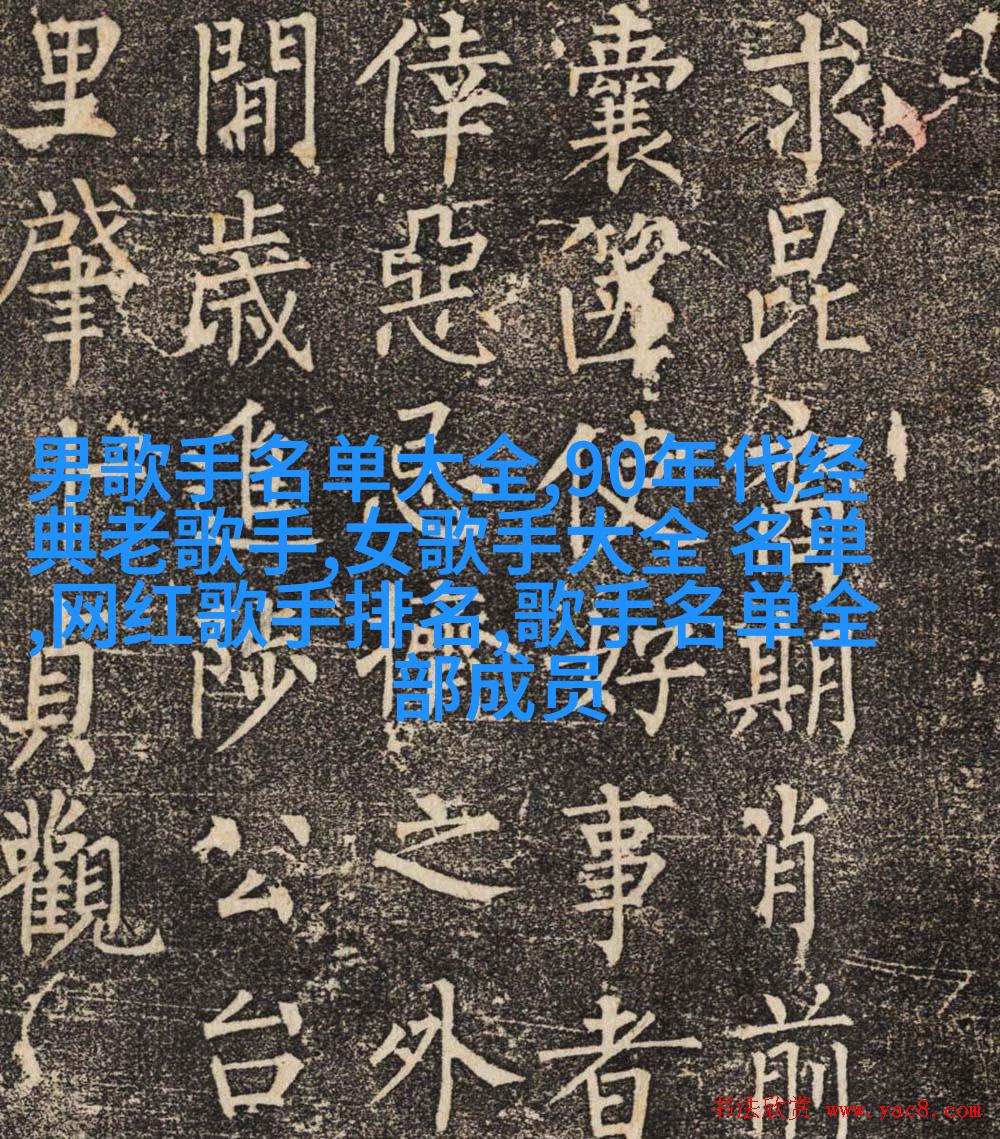 男歌手名单大全,90年代经
典老歌手,女歌手大全 名单
,网红歌手排名,歌手名单全
部成员
求昆期肖前
囊篋使好事者
倖惡之外
閒歲陟公台
里肇貝觀
书法欣赏 www.yac8.com